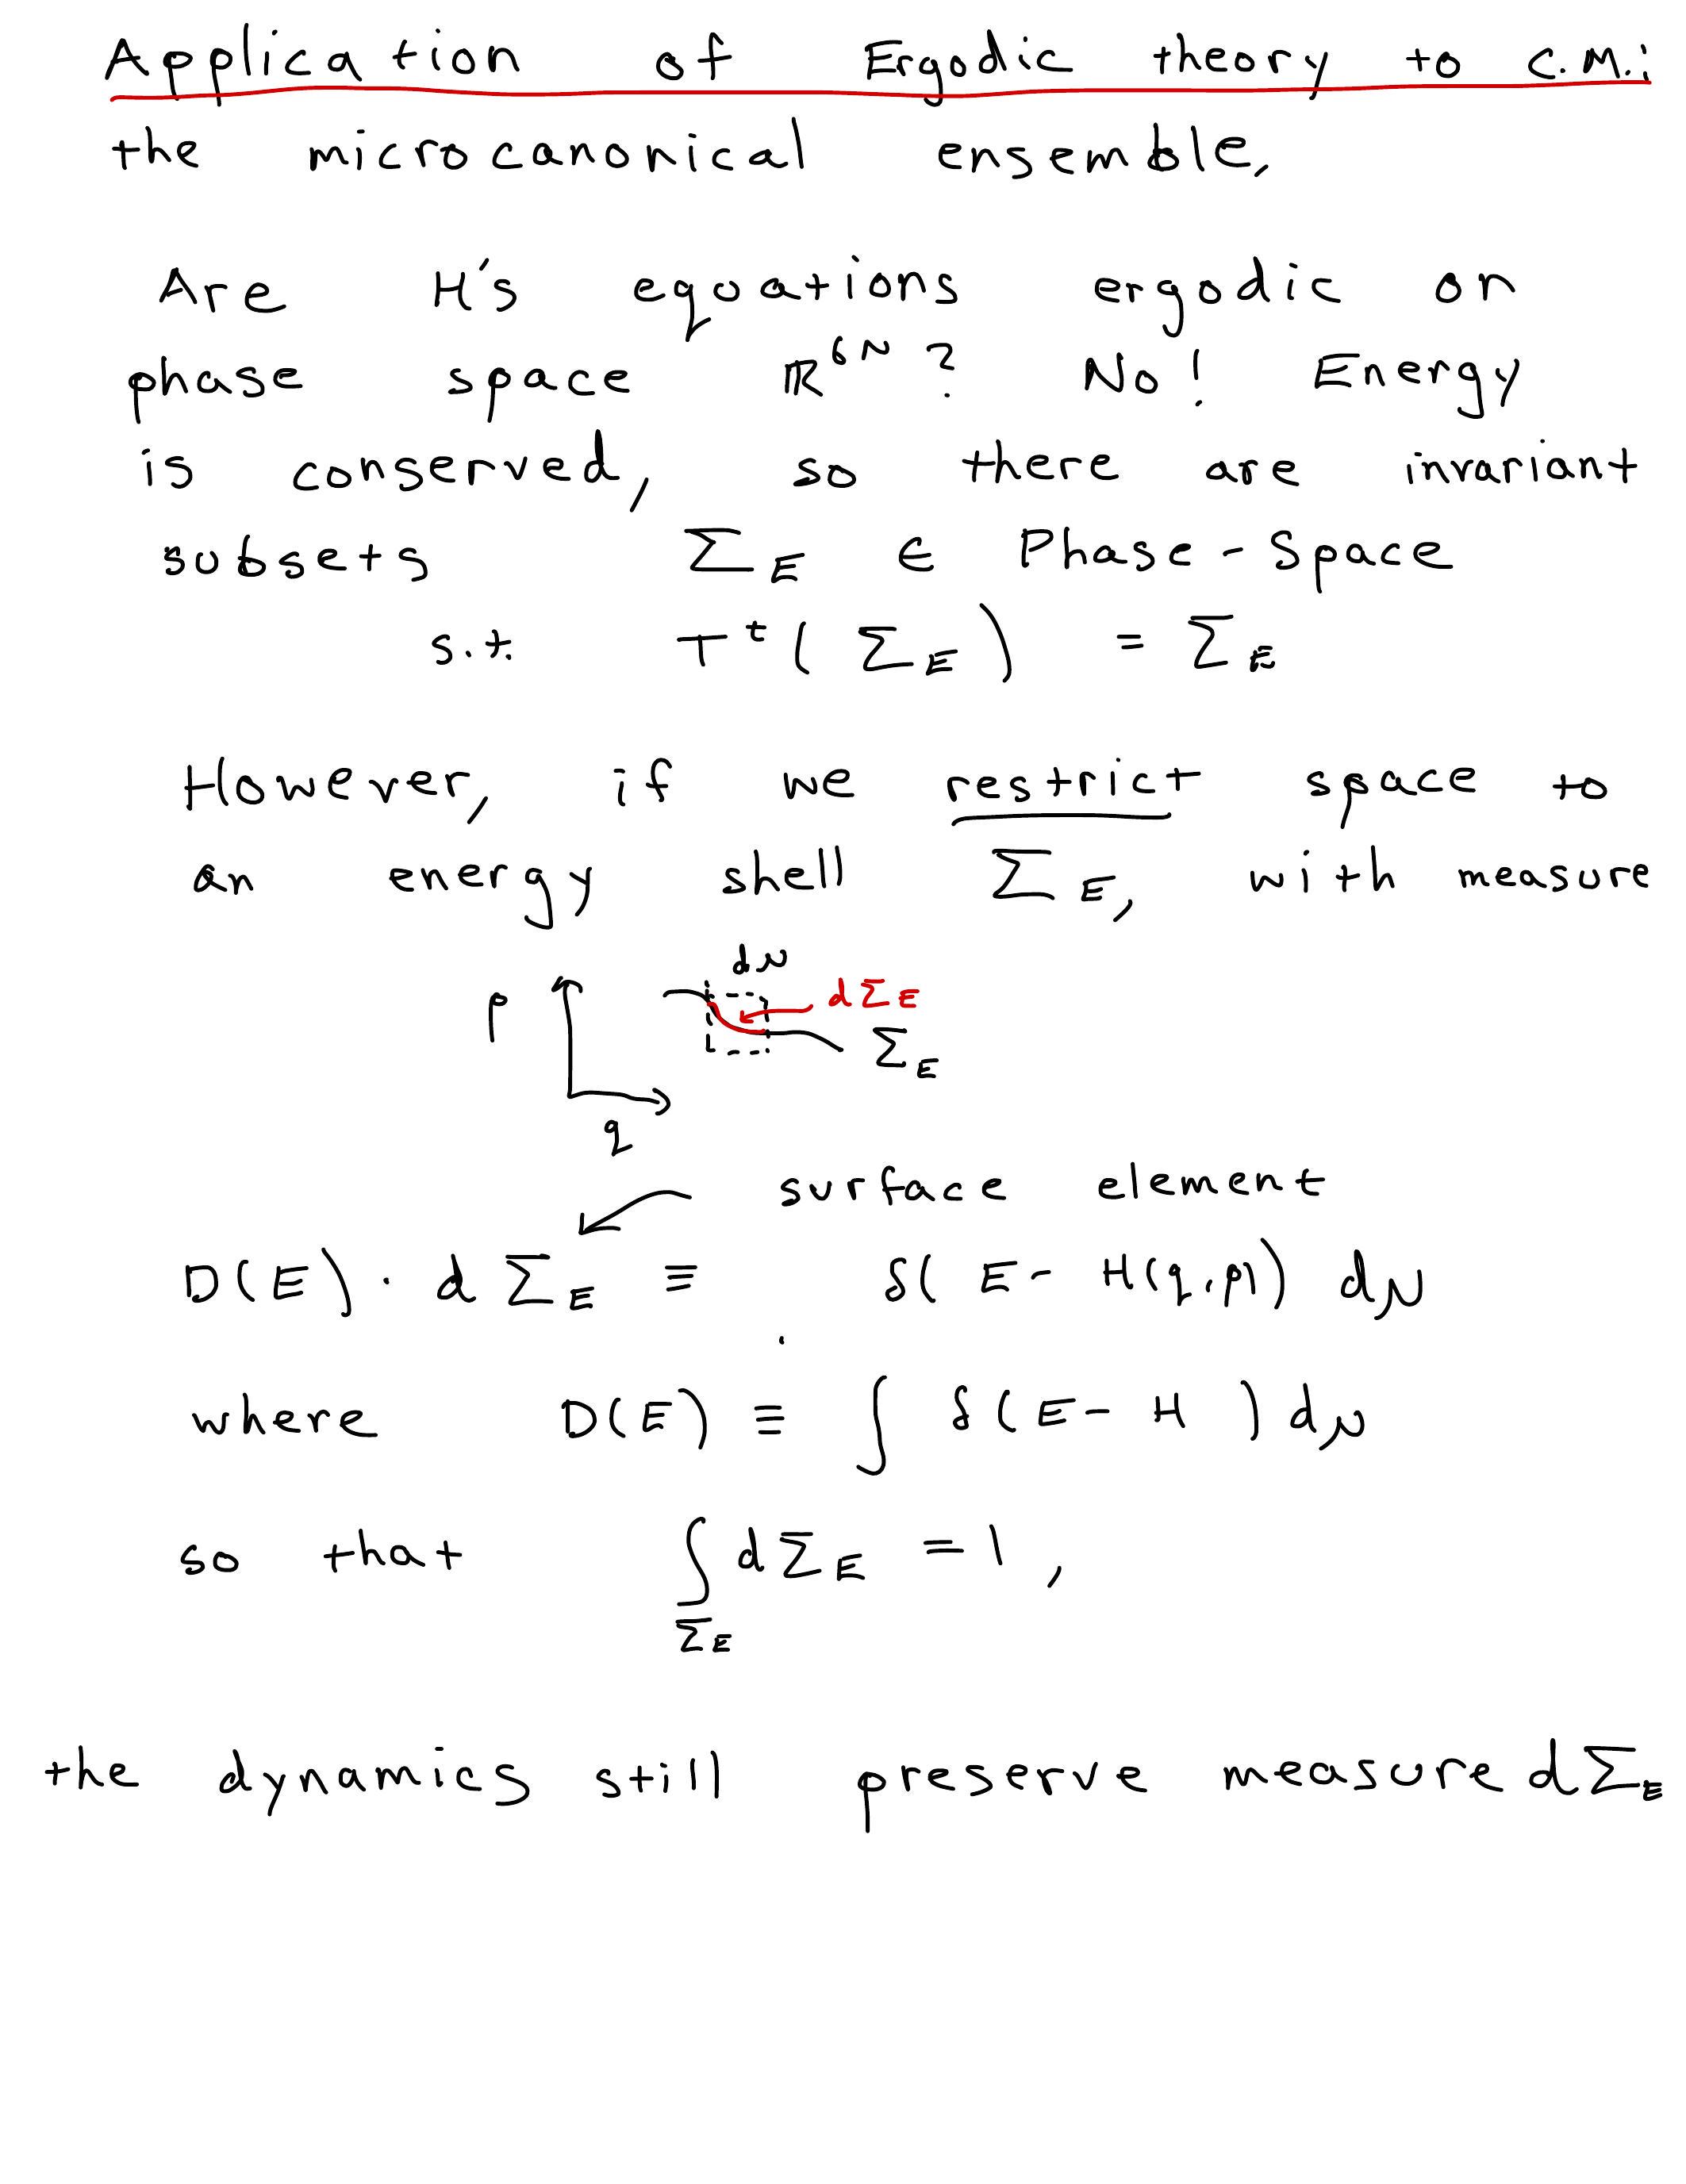 Application of Ergodic theory to C.M.:
the microcanonical ensemble,
Are H's equations ergodic on
phase space ℝ^6N ? No! Energy
is conserved, so there are invariant
subsets Σ_E ∈ Phase-Space
s.t. T^t(Σ_E) = Σ_E
However, if we restrict space to
an energy shell Σ_E, with measure
dμ
p
dΣ_E
Σ_E
q
surface element
D(E) · dΣ_E ≡ δ(E - H(q,p)) dμ
where D(E) ≡ ∫ δ(E - H) dμ
so that ∫_Σ_E dΣ_E = 1,
the dynamics still preserve measure dΣ_E